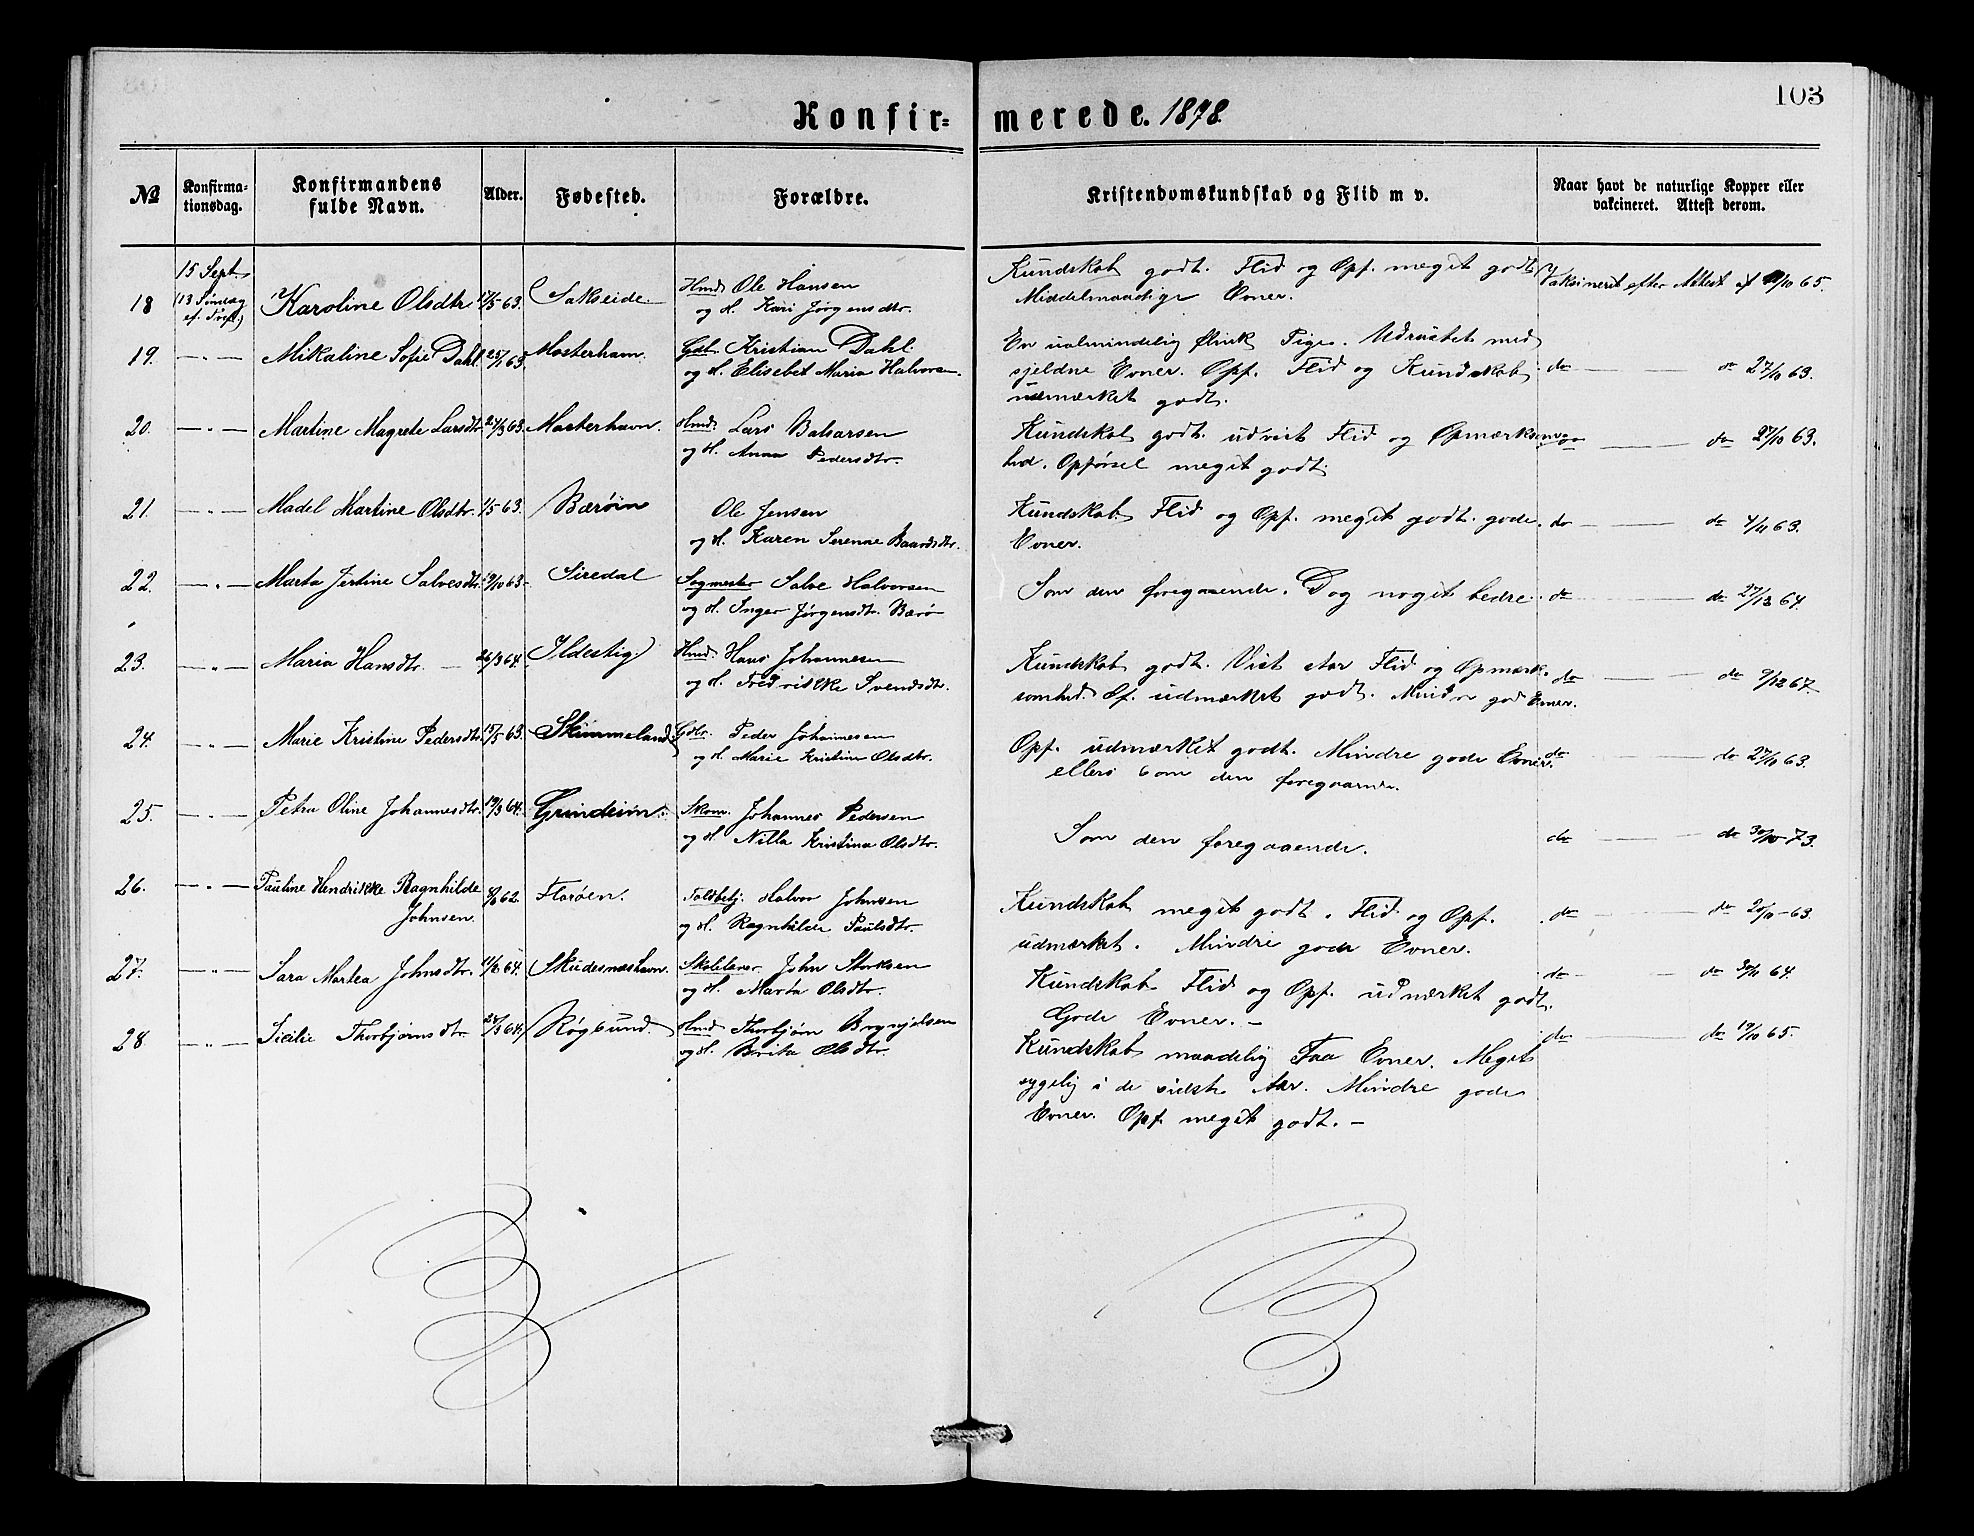 103
Konfir= merede. 1878.
No
Konfirma-
tionsdag.
Konfirmandens
fulde Navn.
Alder.
Fødested.
Forældre.
Kristendomskundskab og Flid m v.
Naar havt de naturlige Kopper eller
vakcineret. Attest derom.
15 Sept.
(13 Søndag
ef. Tref.)
18 Karoline Olsdtr 17/5 63. Sakseide.
Hmd Ole Hansen
og H. Kari Jørgensdtr.
Kundskab godt. Flid og Opf. meget godt
Middelmaadige Evner.
Vaksineret efter Attest af 10 65.
19. — „ — Mikaline Sofie Dahl. 25/7 63. Mosterhavn.
Gdb. Kristian Dahl.
og H. Elisebet Maria Halvorsen.
En ualmindelig flink Pige. Udrustet med
sjeldne Evner. Opf. Flid og Kundskab
udmærket godt.
do — do 27/10 63.
20. — „ — Martine Magrete Larsdtr 27/3 63. Mosterhavn.
Hmd. Lars Balsarsen
og H. Anna Pedersdtr.
Kundskab godt. udvist Flid og Opmærksom
hed. Opførsel meget godt.
do — do 27/10 63.
21. — „ — Madel Martine Olsdtr. 1/5 63. Bærøen
Ole Jensen
og H. Karen Serenne Baardsdtr.
Kundskab. Flid og Opf. meget godt. gode
Evner.
do — do 4/11 63.
22. — „ — Marta Jertine Salvesdtr. 19/10 63. Siredal
Sogmester Salve Halvorsen
og H. Inger Jørgensdtr. Bærø
Som den foregaaende. Dog noget bedre.
do — do 27/12 64.
23. — „ — Maria Hansdtr. — 26/3 64. Ildestig.
Hmd. Hans Johannesen
og H. Fredrikke Svendsdtr.
Kundskab godt. Vist stor Flid og Opmærk-
somhed. Of. udmærket godt. Mindre god Evner.
do — do 9/12 67.
24. — „ — Marie Kristine Pedersdtr 15/5 63. Skimmeland
Gdbr. Peder Johannesen
og H. Marie Kristine Olsdtr.
Opf. udmærket godt. Mindre gode Evner.
ellers som den foregaaende.
do — do 27/10 63.
25. — „ — Petra Oline Johannesdtr. 19/3 64. Grindeim.
Skom. Johannes Pedersen
og H. Nilla Kristina Olsdtr.
Som den foregaaende.
do — do 30/10 73.
26. — „ — Pauline Hendrikke Ragnhilde
Johnsen. 62. Florøen.
Toldbetj. Halvor Johnsen
og H. Ragnhilde Paulsdtr.
Kundskab meget godt. Flid og Opf.
udmærket. Mindre gode Evner.
do — do 20/11 - 63.
27. — „ — Sara Martea Johnsdtr. 64. Skudesneshavn.
Skolelærer John Storksen
og H. Marta Olsdtr.
Kundskab Flid og Opf. udmærket godt.
Gode Evner. —
do — do 30/11 64.
28. — „ — Sicilie Thorbjørnsdtr. 28/3 64. Røgsund.
Hmd Thorbjørn Brynjelsen
og H. Brita Olsdtr.
Kundskab maadelig Faa Evner. Meget
sygelig i de sidste Aar. Mindre gode
Evner. Opf. meget godt. —
do — do 19/10 65.